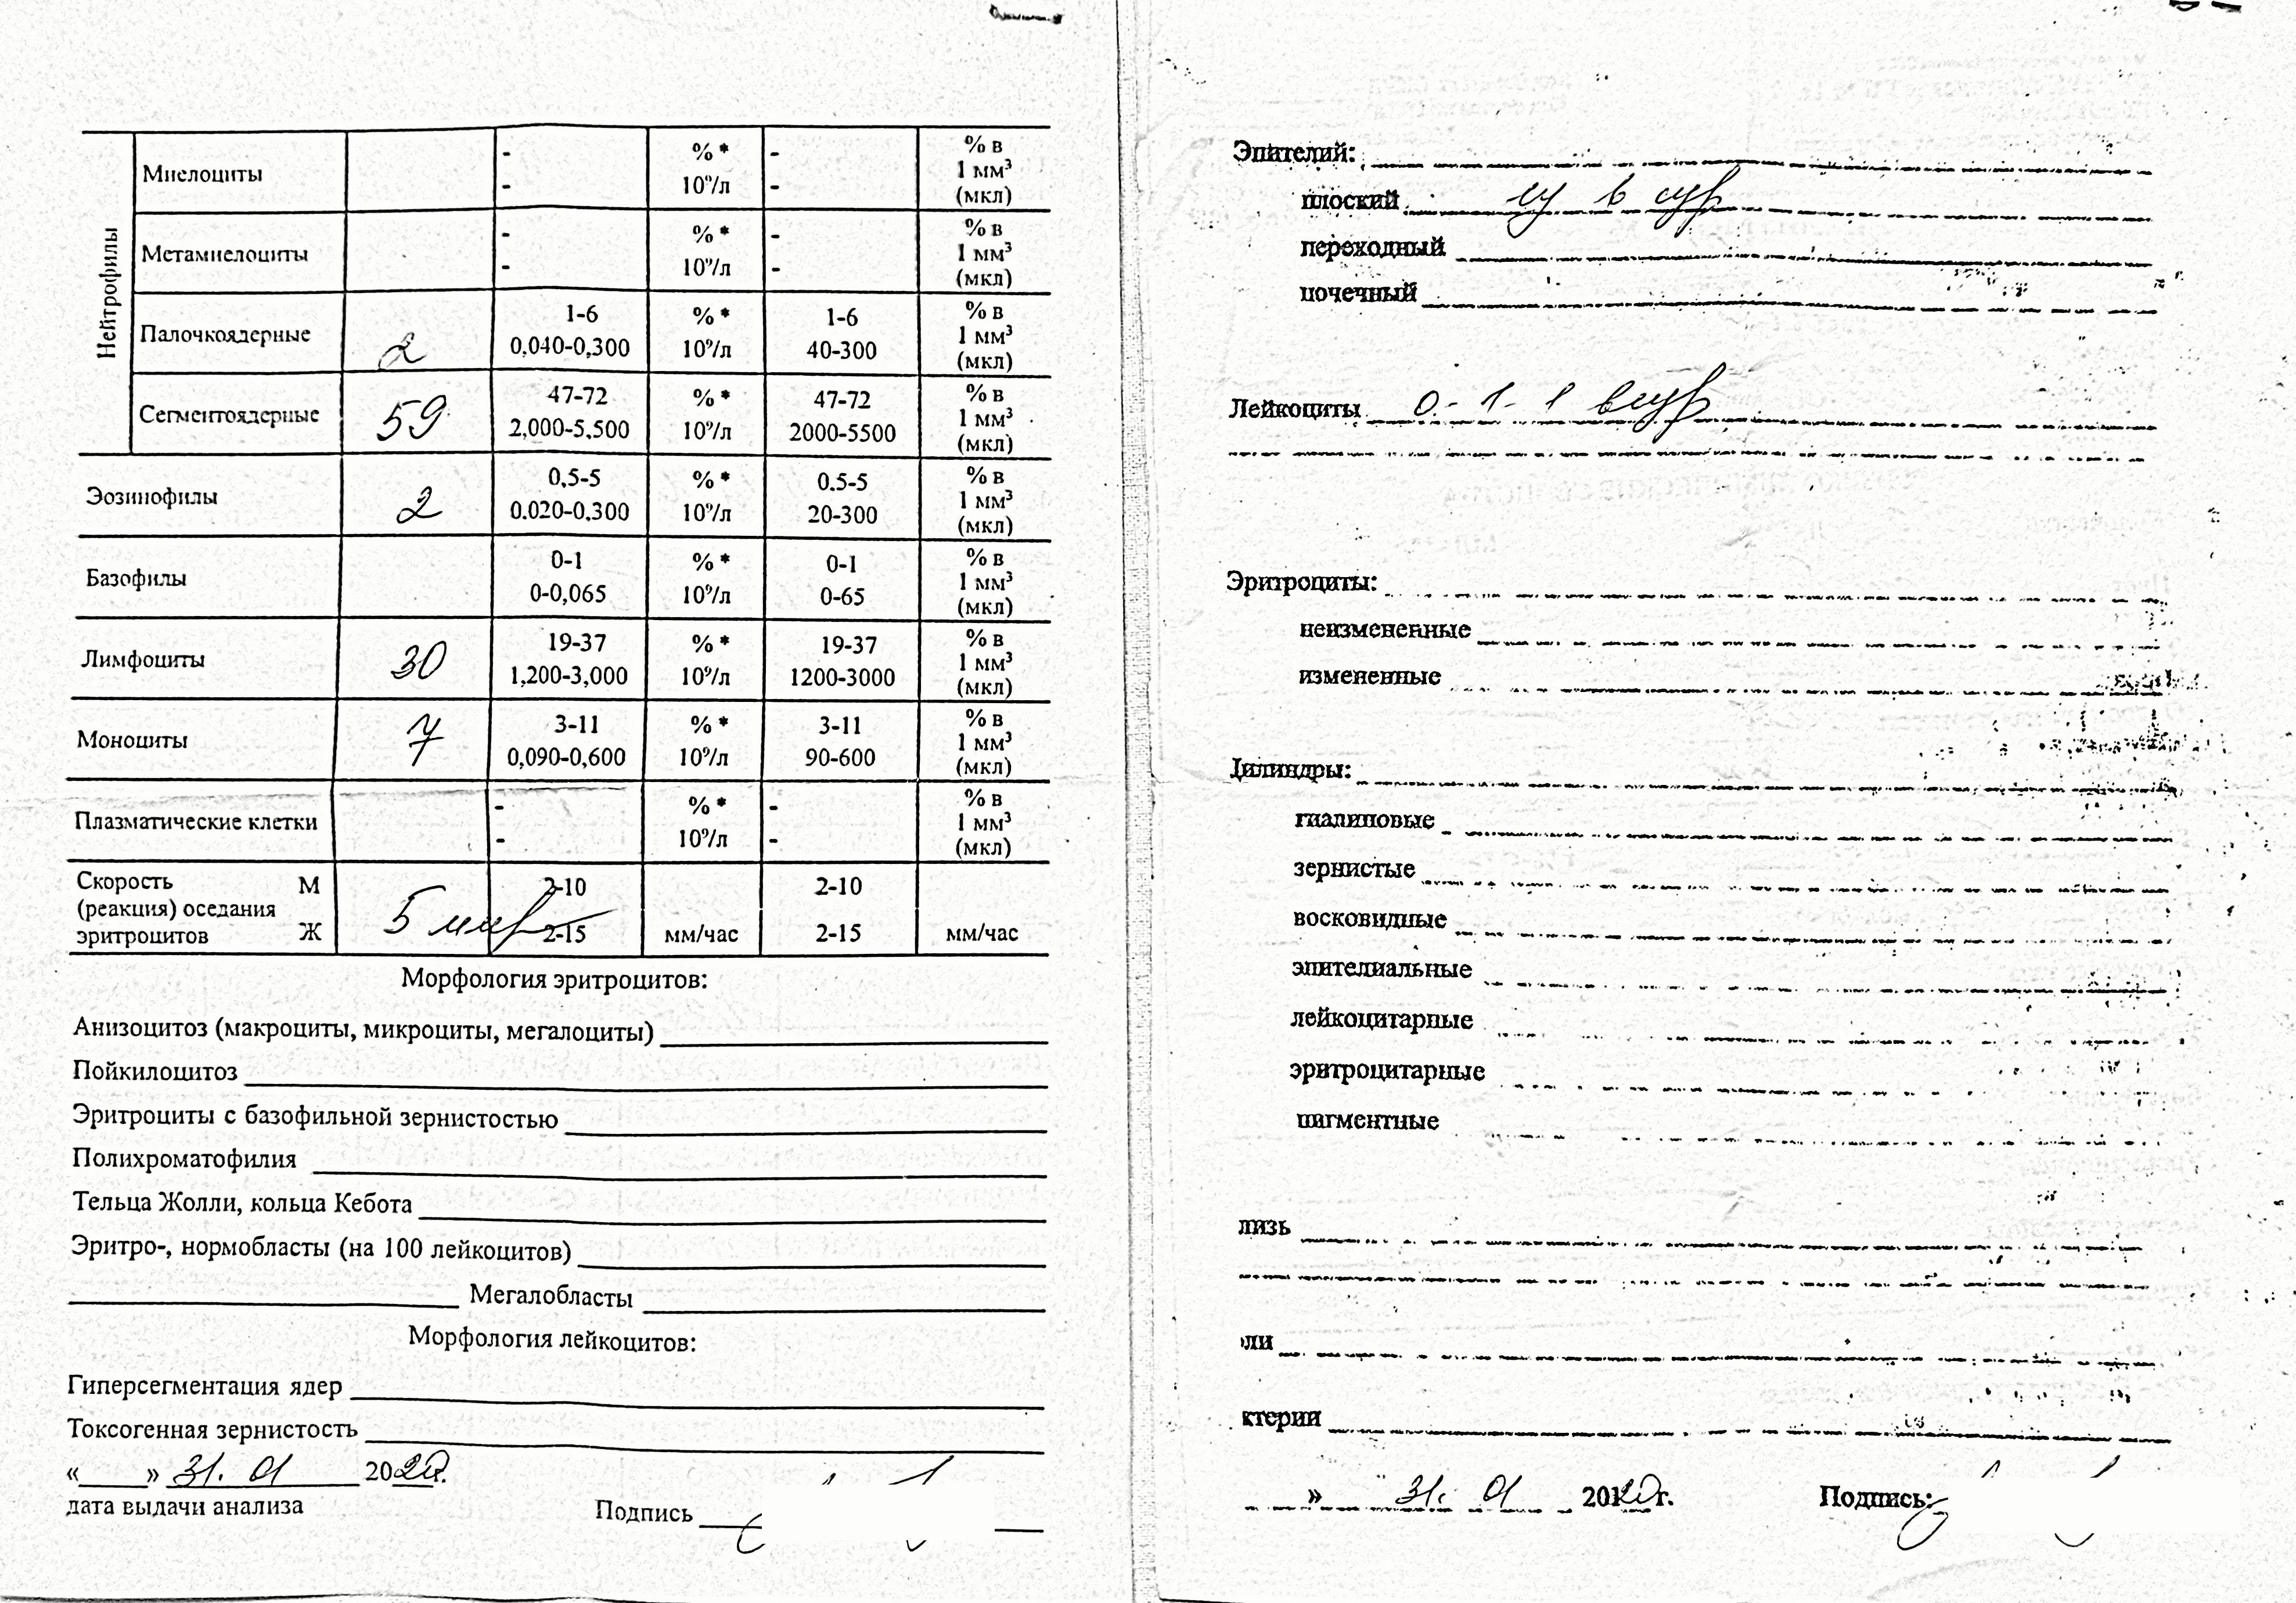 Нейтрофилы
Миелоциты - % * - % в
- 10⁹/л - 1 мм³
(мкл)
Метамиелоциты - % * - % в
- 10⁹/л - 1 мм³
(мкл)
Палочкоядерные 2 1-6 % * 1-6 % в
0,040-0,300 10⁹/л 40-300 1 мм³
(мкл)
Сегментоядерные 59 47-72 % * 47-72 % в
2,000-5,500 10⁹/л 2000-5500 1 мм³
(мкл)
Эозинофилы 2 0,5-5 % * 0.5-5 % в
0.020-0,300 10⁹/л 20-300 1 мм³
(мкл)
Базофилы 0-1 % * 0-1 % в
0-0,065 10⁹/л 0-65 1 мм³
(мкл)
Лимфоциты 30 19-37 % * 19-37 % в
1,200-3,000 10⁹/л 1200-3000 1 мм³
(мкл)
Моноциты 7 3-11 % * 3-11 % в
0,090-0,600 10⁹/л 90-600 1 мм³
(мкл)
Плазматические клетки - % * - % в
- 10⁹/л - 1 мм³
(мкл)
Скорость М 2-10 2-10
(реакция) оседания 5
эритроцитов Ж 2-15 мм/час 2-15 мм/час
Морфология эритроцитов:
Анизоцитоз (макроциты, микроциты, мегалоциты)
Пойкилоцитоз
Эритроциты с базофильной зернистостью
Полихроматофилия
Тельца Жолли, кольца Кебота
Эритро-, нормобласты (на 100 лейкоцитов)
Мегалобласты
Морфология лейкоцитов:
Гиперсегментация ядер
Токсогенная зернистость
« » 31. 01 2020г.
дата выдачи анализа
Подпись
Эпителий:
плоский
переходный
почечный
Лейкоциты 0-1-1 в
Эритроциты:
неизмененные
измененные
Цилиндры:
гиалиновые
зернистые
восковидные
эпителиальные
лейкоцитарные
эритроцитарные
пигментные
лизь
ли
ктерии
» 31. 01 2020 г. Подпись: